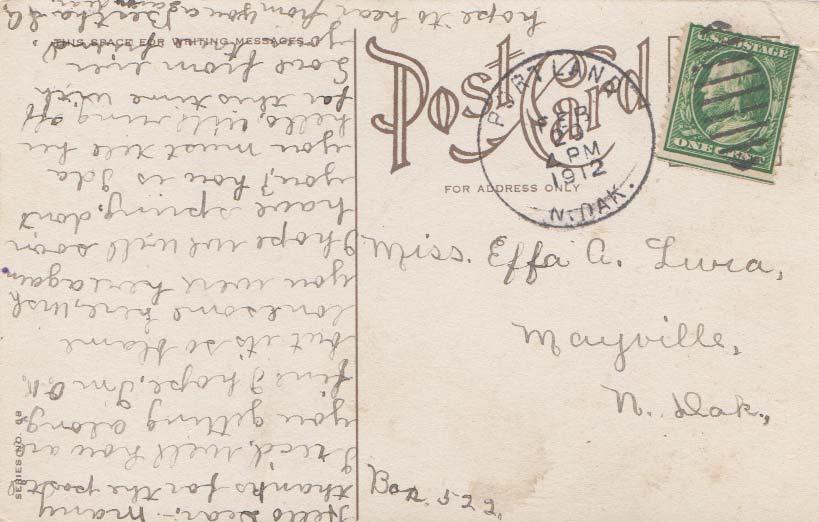 THIS SPACE FOR WRITING MESSAGES
Post Card
FOR ADDRESS ONLY
U.S. POSTAGE
ONE CENT
PORTLAND
FEB
20
4 PM
1912
N. DAK.
Miss. Effa A. Lura,
Mayville,
N. Dak.,
Box. 522.
SERIES NO.
Hello Dear;- Many
thanks for the postal
I recd, well how are
you getting along,
fine I hope, I'm O.K.
but it's so blame
lonesome here, wish
you were here again
I hope we will soon
have spring, don't
you, how is Ida
you must tell her
hello, will ring off
for this time with
Love from
hope to hear from you again
Bertha